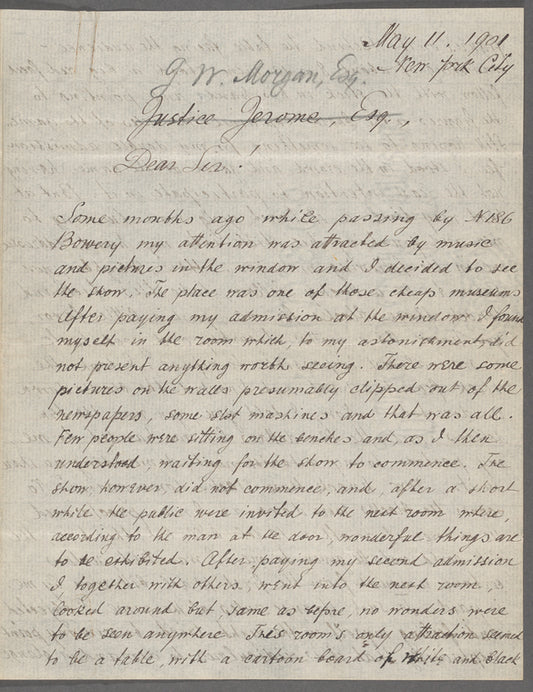 May 11. 1901
New York City
G. W. Morgan, Esq.
Justice Jerome, Esq.,
Dear Sir:
Some months ago while passing by N 186
Bowery my attention was attracted by music
and pictures in the window and I decided to see
the show. The place was one of those cheap museums
After paying my admission at the window I found
myself in the room which, to my astonishment, did
not present anything worth seeing. There were some
pictures on the walls presumably clipped out of the
newspapers, some slot machines and that was all.
Few people were sitting on the benches and, as I then
understood, waiting for the show to commence. The
show, however, did not commence, and, after a short
while the public were invited to the next room where,
according to the man at the door, wonderful things are
to be exhibited. After paying my second admission
I together with others, went into the next room,
looked around but, same as before, no wonders were
to be seen anywhere. This room's only attraction seemed
to be a table, with a cartoon board of white and black